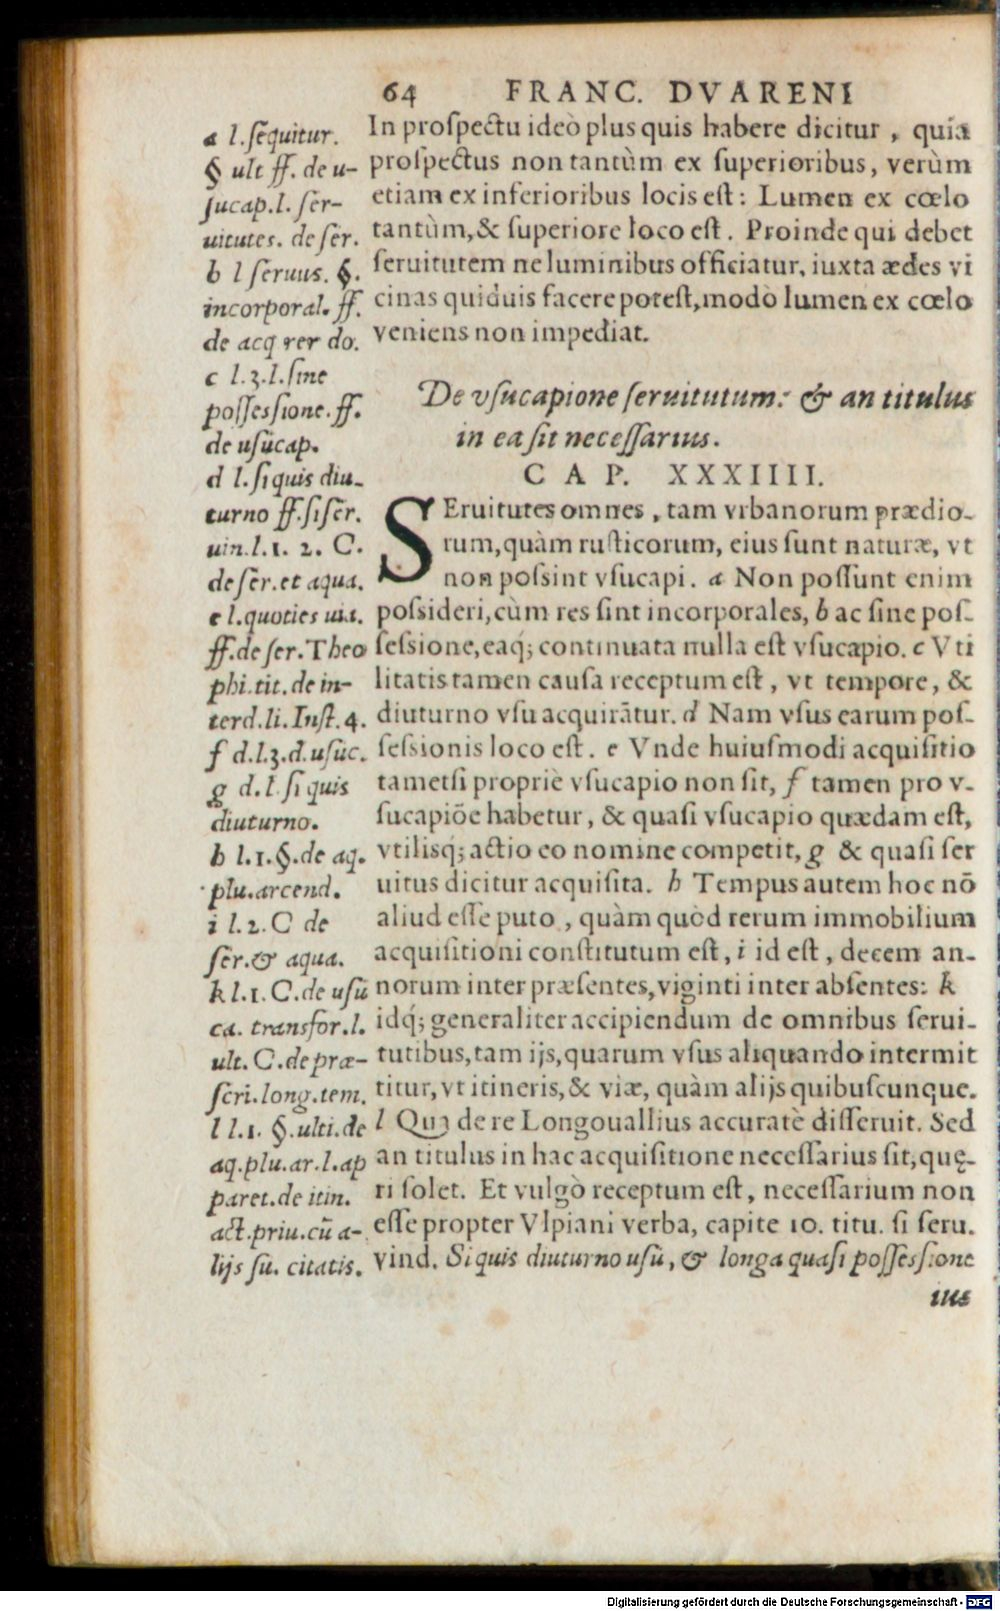 64 FRANC. DVARENI
In proſpectu ideò plus quis habere dicitur, quia
proſpectus non tantùm ex ſuperioribus, verùm
etiam ex inferioribus locis eſt: Lumen ex cœlo
tantùm, & ſuperiore loco eſt. Proinde qui debet
ſeruitutem ne luminibus officiatur, iuxta ædes vi
cinas quiduis facere poteſt, modò lumen ex cœlo
veniens non impediat.
De vſucapione ſeruitutum: & an titulus
in ea ſit neceſſarius.
CAP. XXXIIII.
SEruitutes omnes, tam vrbanorum prædio-
rum, quàm ruſticorum, eius ſunt naturæ, vt
non poſsint vſucapi. a Non poſſunt enim
poſsideri, cùm res ſint incorporales, b ac ſine poſ-
ſeſsione, eaq́; continuata nulla eſt vſucapio. c Vti
litatis tamen cauſa receptum eſt, vt tempore, &
diuturno vſu acquirãtur. d Nam vſus earum poſ-
ſeſsionis loco eſt. e Vnde huiuſmodi acquiſitio
tametſi propriè vſucapio non ſit, f tamen pro v-
ſucapiõe habetur, & quaſi vſucapio quædam eſt,
vtilisq́; actio eo nomine competit, g & quaſi ſer
uitus dicitur acquiſita. h Tempus autem hoc nõ
aliud eſſe puto, quàm quòd rerum immobilium
acquiſitioni conſtitutum eſt, i id eſt, decem an-
norum inter præſentes, viginti inter abſentes: k
idq́; generaliter accipiendum de omnibus ſerui-
tutibus, tam ijs, quarum vſus aliquando intermit
titur, vt itineris, & viæ, quàm alijs quibuſcunque.
l Qua de re Longouallius accuratè diſſeruit. Sed
an titulus in hac acquiſitione neceſſarius ſit, quę-
ri ſolet. Et vulgò receptum eſt, neceſſarium non
eſſe propter Vlpiani verba, capite 10. titu. ſi ſeru.
vind. Si quis diuturno uſu, & longa quaſi poſſeſsione
ius
a l. ſequitur.
§ ult ff. de u-
ſucap. l. ſer-
uitutes. de ſer.
b l ſeruus. §.
incorporal. ff.
de acq rer do.
c l. 3. l. ſine
poſſeſsione. ff.
de uſucap.
d l. ſi quis diu-
turno ff. ſi ſer.
uin. l. 1. 2. C.
de ſer. et aqua.
e l. quoties uia.
ff. de ſer. Theo
phi. tit. de in-
terd. li. Inſt. 4.
f d. l. 3. d. uſuc.
g d. l. ſi quis
diuturno.
h l. 1. §. de aq.
plu. arcend.
i l. 2. C de
ſer. & aqua.
k l. 1. C. de uſu
ca. transfor. l.
ult. C. de præ-
ſcri. long. tem.
l l. 1. §. ulti. de
aq. plu. ar. l. ap
paret. de itin.
act. priu. cũ a-
lijs ſu. citatis.
Digitalisierung gefördert durch die Deutsche Forschungsgemeinschaft - DFG